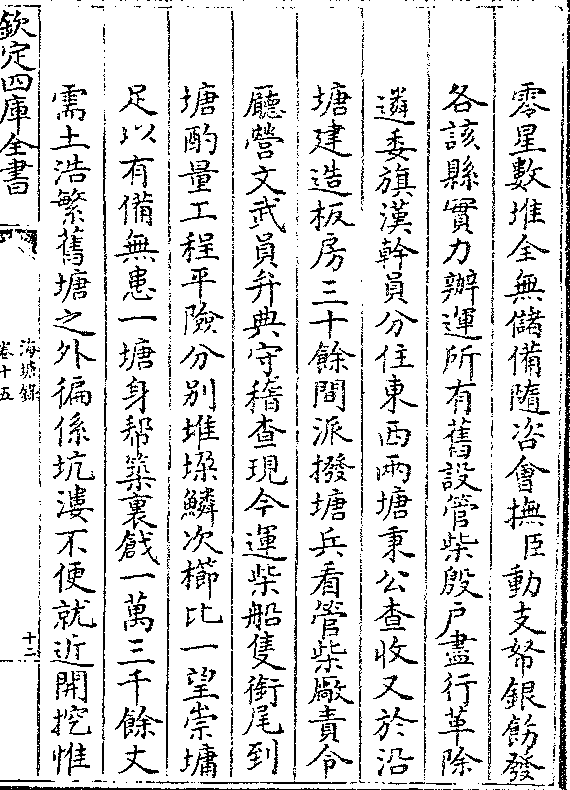 零星數堆全無儲備隨咨會撫臣動支帑銀飭發
各該縣實力辦運所有舊設管柴殷户盡行革除
遴委旗漢幹員分住東西兩塘秉公查收又於沿
塘建造板房三十餘間派撥塘兵看管柴廠責令
廳營文武員弁典守稽查現今運柴船隻銜尾到
塘酌量工程平險分别堆垜鱗次櫛比一望崇墉
足以有備無患一塘身幇築裏戧一萬三千餘丈
需土浩繁舊塘之外徧係坑漊不便就近開挖惟
欽定四庫全書
海塘録
卷十五
十二